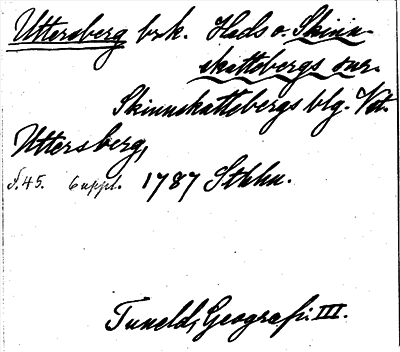 Uttersberg brk. Heds o. Skinn-
skattebergs snr.
Skinnskattebergs blg. Vst.
Uttersberg,
s. 45. 6 uppl. 1787 Sthlm.
Tuneld, Geografi. III.